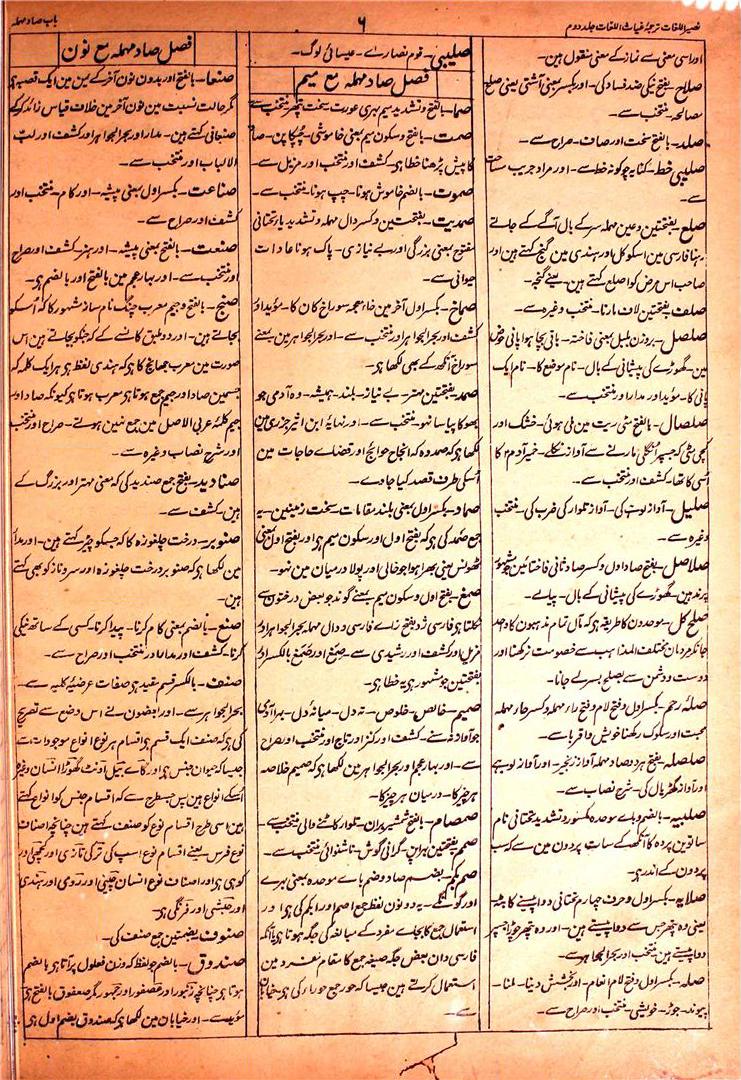 نصیر اللغات ترجمۂ غیاث اللغات جلد دوم
۶
باب صاد مہملہ
اور اسی معنی سے نماز کے معنی منقول ہین۔
صلاح۔ بفتح نیکی ضد فساد کی۔ اور بکسر بمعنی آشتی یعنی صلح
مصالحہ۔ منتخب سے۔
صلد۔ بالفتح سخت اور صاف۔ صراح سے۔
صلیبی خط۔ کنایہ چوگوشہ خط سے۔ اور مراد جریب
سے۔
صلع۔ بفتحتین و عین مہملہ سر کے بال آگے کے جاتے
رہنا فارسی مین اسکو کل اور ہندی مین گنج کہتے ہین اور
صاحب اس مرض کو اصلع کہتے ہین۔ یعنے گنجہ۔
صلف۔ بفتحتین لاف مارنا۔ منتخب وغیرہ سے۔
صلصل۔ بروزن بلبل بمعنی فاختہ۔ باقی بچا ہوا پانی حوض
مین۔ گھوڑے کی پیشانی کے بال۔ نام موضع کا۔ نام ایک
پانی کا۔ مؤید اور مدار اور منتخب سے۔
صلصال۔ بالفتح مٹی ریت مین ملی ہوئی۔ خشک اور
کچی مٹی کہ جسپر انگلی مارنے سے آواز نکلے۔ خمیر آدم کا
اسی کا تھا۔ کشف اور منتخب سے۔
صلیل۔ آواز لوہے کی۔ آواز تلوار کی ضرب کی۔ منتخب
وغیرہ سے۔
صلاصل۔ بفتح صاد اول و کسر صاد ثانی فاختائین جو مشہور
پرند ہین۔ گھوڑے کی پیشانی کے بال۔ پیالے۔
صلح کل۔ موحدون کا طریقہ ہی کہ مآل تمام مذہبون کا واحد
جانکر مردمان مختلف المذاہب سے خصومت نرکھنا اور
دوست و دشمن سے بصلح بسر لے جانا۔
صلۂ رحم۔ بکسر اول و فتح لام و فتح راء مہملہ و کسر حار مہملہ
محبت اور سلوک رکھنا خویش و اقربا سے۔
صلصلہ۔ بفتح ہر دو صاد مہملہ آواز زنجیر۔ اور آواز لوہے
اور آواز گھڑیال کی۔ شرح نصاب سے۔
صلبیہ۔ بالضم و باے موحدہ مکسور و تشدید تحتانی نام
ساتوین پردہ کا آنکھ کے سات پردون مین سے کہ سب
پردون کے اندر ہی۔
صلایہ۔ بکسر اول و حرف چہارم تحتانی دوا پیسنے کا بٹہ
یعنی وہ پتھر جس سے دوا پیستے ہین۔ اور وہ پتھر چوڑا جسپر
دوا پیستے ہین منتخب اور بحر الجواہر سے۔
صلہ۔ بکسر اول و فتح لام انعام۔ اور بخشش دینا۔ ملنا۔
پیوند۔ جوڑ۔ خویشی۔ منتخب اور صراح سے۔
صلیبی۔ قوم نصاراے۔ عیسائی لوگ۔
فصل صاد مہملہ مع میم
صما۔ بالفتح و تشدید میم بہری عورت سخت پتھر منتخب سے
صمت۔ بالفتح و سکون میم بمعنی خاموشی۔ چپکا پن۔ صاد
کا پیش پڑھنا خطا ہی۔ کشف اور منتخب اور مزیل سے۔
صموت۔ بالضم خاموش ہونا۔ چپ ہونا۔ منتخب سے۔
صمدیت۔ بفتحتین و کسر دال مہملہ و تشدید یاء تحتانی
مفتوح بمعنی بزرگی اور بے نیازی۔ پاک ہونا عادات
حیوانی سے۔
صماخ۔ بکسر اول آخر مین خاء معجمہ سوراخ کان کا۔ مؤید اور
کشف اور بحر الجواہر اور منتخب سے۔ اور بحر الجواہر مین بمعنے
سوراخ آنکھ کے بھی لکھا ہی۔
صمد۔ بفتحتین مہتر۔ بے نیاز۔ بلند۔ ہمیشہ۔ وہ آدمی جو
بھوکا پیاسا نہو۔ منتخب سے۔ اور نہایۂ ابن اثیر جزری مین
لکھا ہی کہ صمد وہ کہ انجاح حوائج اور قضاے حاجات مین
اسکی طرف قصد کیا جاوے۔
صماد۔ بکسر اول بمعنی بلند مقامات سخت زمینین۔ یہ
جمع صمد کی ہی کہ بفتح اول اور سکون میم ہی اور بفتح اول بمعنی
ٹھوس یعنی بھرا ہوا جو خالی اور پولا درمیان مین نہو۔
صمغ۔ بفتح اول و سکون میم بمعنے گوند جو بعض درختون سے
نکلتا ہی فارسی زد بفتح زاے فارسی و دال مہملہ بحر الجواہر اور
مزیل اور کشف اور رشیدی سے۔ صمغ اور صمغ بالکسر اور
بفتحتین جو مشہور ہی یہ خطا ہی۔
صمیم۔ خالص۔ خلوص۔ تہ دل۔ میانۂ دل۔ بہرا آدمی
جو آواز نہ سنے۔ کشف اور کنز اور تاج اور منتخب اور صراح
سے۔ اور بہار عجم اور بحر الجواہر مین لکھا ہی کہ صمیم خلاصہ
ہر چیز کا۔ درمیان ہر چیز کا۔
صمصام۔ بالفتح شمشیر بران۔ تلوار کاٹنے والی منتخب سے۔
صمم۔ بفتحتین بہراپن۔ گرانی گوش۔ ناشنوائی منتخب سے۔
صم بکم۔ بضم صاد و ضم باے موحدہ بمعنی بہرے
اور گونگے۔ یہ دونون لفظ جمع اصم اور ابکم کی ہی اور
استعمال جمع کا بجاے مفرد کے مبالغہ کی جگہ ہوتا ہی بلکہ
فارسی دان بعض جگہ صیغہ جمع کا مقام مفرد مین
استعمال کرتے ہین جیسا کہ حور جمع حوراء کی ہی خیابان
سے۔
فصل صاد مہملہ مع نون
صنعا۔ بالفتح اور بدون نون آخر کے یمن مین ایک قصبہ ہی
مگر حالت نسبت مین نون آخر مین خلاف قیاس زائد کرکے
صنعانی کہتے ہین۔ مدار اور بحر الجواہر اور کشف اور لب
الالباب اور منتخب سے۔
صناعت۔ بکسر اول بمعنی پیشہ۔ اور کام۔ منتخب اور
کشف اور صراح سے۔
صنعت۔ بالفتح بمعنی پیشہ۔ اور ہنر۔ کشف اور صراح
اور منتخب سے۔ اور بہار عجم مین بالفتح اور بالضم ہی۔
صنج۔ بالفتح و جیم معرب چنگ نام ساز مشہور کا کہ اسکو
بجاتے ہین۔ اور دو طبق کانسے کے کہ جنکو بجاتے ہین اس
صورت مین معرب جھانج کا ہی کہ ہندی لفظ ہی ہر ایک کلمہ کہ
جسمین صاد اور جیم جمع ہوتا ہی معرب ہوتا ہی کیونکہ صاد اور
جیم کلمۂ عربی الاصل مین جمع نہین ہوتے۔ صراح اور منتخب
اور شرح نصاب وغیرہ سے۔
صنادید۔ بفتح جمع صندید کی کہ معنی مہتر اور بزرگ کے
ہین۔ کشف سے۔
صنوبر۔ درخت چلغوزہ کا کہ جسکو چیڑ کہتے ہین۔ اور مدار
مین لکھا ہی کہ صنوبر درخت چلغوزہ اور سرو ناز کو بھی کہتے
ہین۔
صنع۔ بالضم بمعنی کام کرنا۔ پیدا کرنا۔ کسی کے ساتھ نیکی
کرنا۔ کشف اور مدار اور منتخب اور صراح سے۔
صنف۔ بالکسر قسم مقید ہی صفات عرضیۂ کلیہ سے۔
بحر الجواہر سے۔ اور بعضون نے اس وضع سے تصریح
کی ہی کہ صنف ایک قسم ہی اقسام ہر نوع انواع موجودات سے
جیسا کہ حیوان جنس ہی اور گاے بیل اونٹ گھوڑا انسان وغیرہ
اسکے انواع ہین پس جسطرح سے کہ اقسام جنس کو انواع کہتے
ہین اسی طرح اقسام نوع کو صنف کہتے ہین چنانچہ اصناف
نوع فرس۔ یعنے اقسام نوع اسپ کی ترکی تازی اور کچھی اور
کوہی ہی اور اصناف نوع انسان چینی اور رومی اور ہندی
اور حبشی اور فرنگی ہی۔
صنوف۔ بضمتین جمع صنف کی۔
صندوق۔ بالضم جو لفظ کہ وزن فعلول پر آتا ہی بالضم
ہوتا ہی چنانچہ زنبور اور عصفور اور جمہور مگر صعفوق بالفتح ہی
مؤید سے۔ اور خیابان مین لکھا ہی کہ صندوق بضم اول ہی